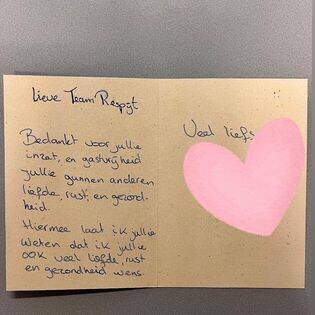 Lieve Team Respijt
Bedankt voor jullie
inzet, en gastvrijheid
jullie gunnen anderen
liefde, rust, en gezond-
heid.
Hiermee laat ik jullie
weten dat ik jullie
OOK veel liefde, rust
en gezondheid wens.
Veel liefs